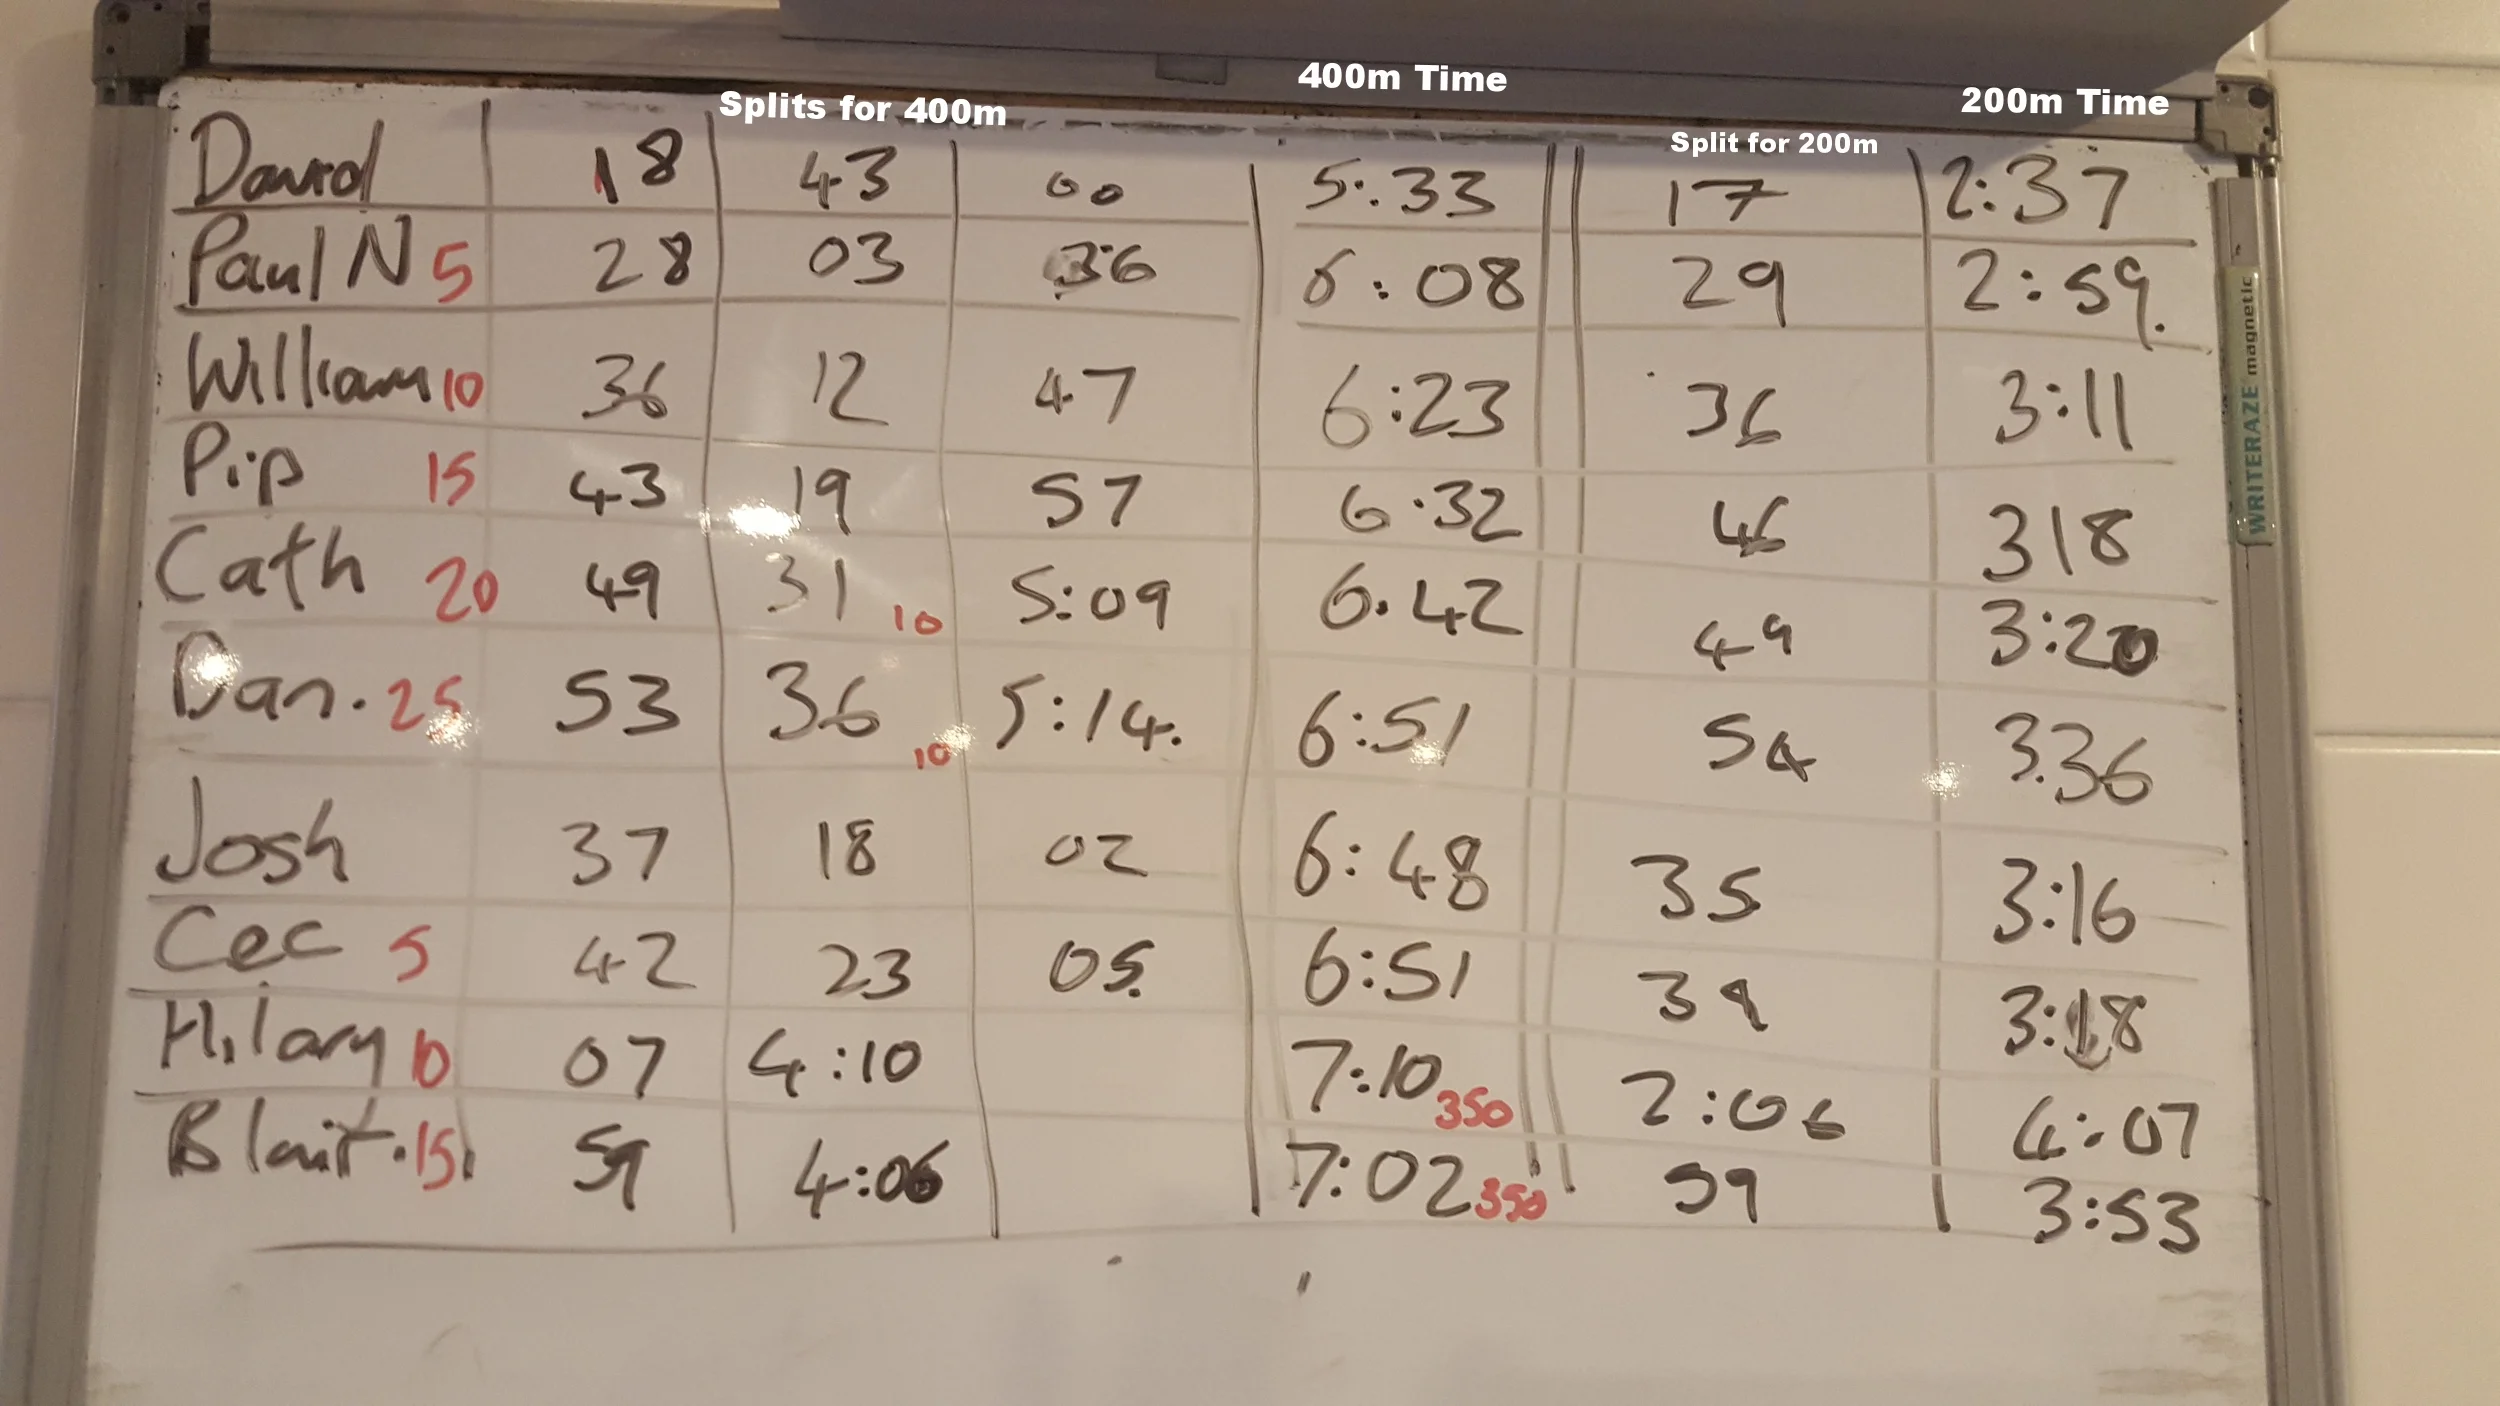 400m Time
Splits for 400m
200m Time
Split for 200m
David 18 43 00 5:33 17 2:37
Paul N 5 28 03 36 6:08 29 2:59.
William 10 36 12 47 6:23 36 3:11
Pip 15 43 19 57 6.32 46 318
Cath 20 49 31 10 5:09 6.42 49 3:20
Dan. 25 53 36 10 5:14. 6:51 54 3.36
Josh 37 18 02 6:48 35 3:16
Cec 5 42 23 05. 6:51 39 3:18
Hilary 10 07 4:10 7:10 350 2:06 4:07
Blait. 15 59 4:06 7:02 350 59 3:53
WRITERAZE magnetic